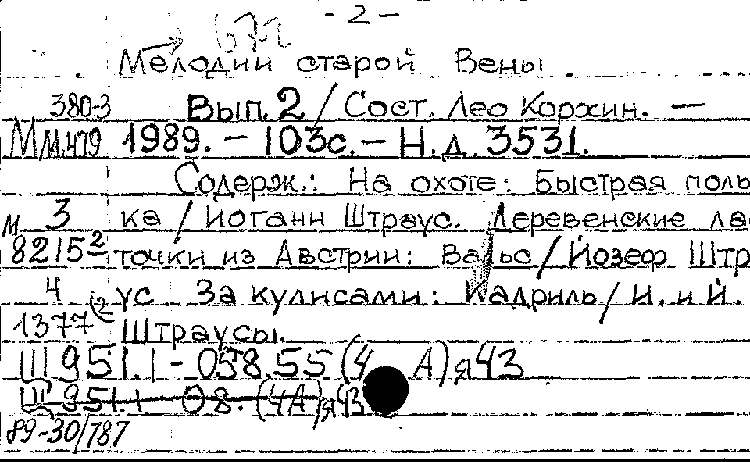 - 2 -
Мелодии старой Вены.
380-3 Вып. 2 / Сост. Лео Коржин. —
1989. – 103с. – Н.д. 3531.
Содерж.: На охоте: Быстрая поль
М 3 ка / Иоганн Штраус. Деревенские лас
82152 точки из Австрии: Вальс / Йозеф Штра
4 ус За кулисами: Кадриль / И. и Й.
1377 Штраусы.
Ш 951.1 - 058.55 (4 А) я43
Ш 951.1 08. (4А) я43
89-30/787